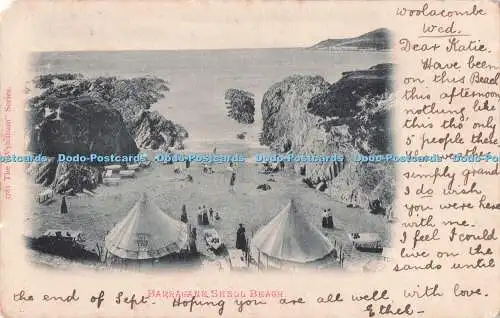 Woolacombe
Wed.
Dear Katie.
Have been
on this Beach
this afternoon
nothing like
this tho only
5 people there,
simply grand
I do wish
you were here
with me.
I feel I could
live on the
sands until
the end of Sept. Hoping you are all well with love.
Ethel.
BARRACANE SHELL BEACH
1761 The "Wyndham" Series.
Dodo-Postcards.Com Dodo-Postcards.Com Dodo-Postcards.Com Dodo-Postcards.Com